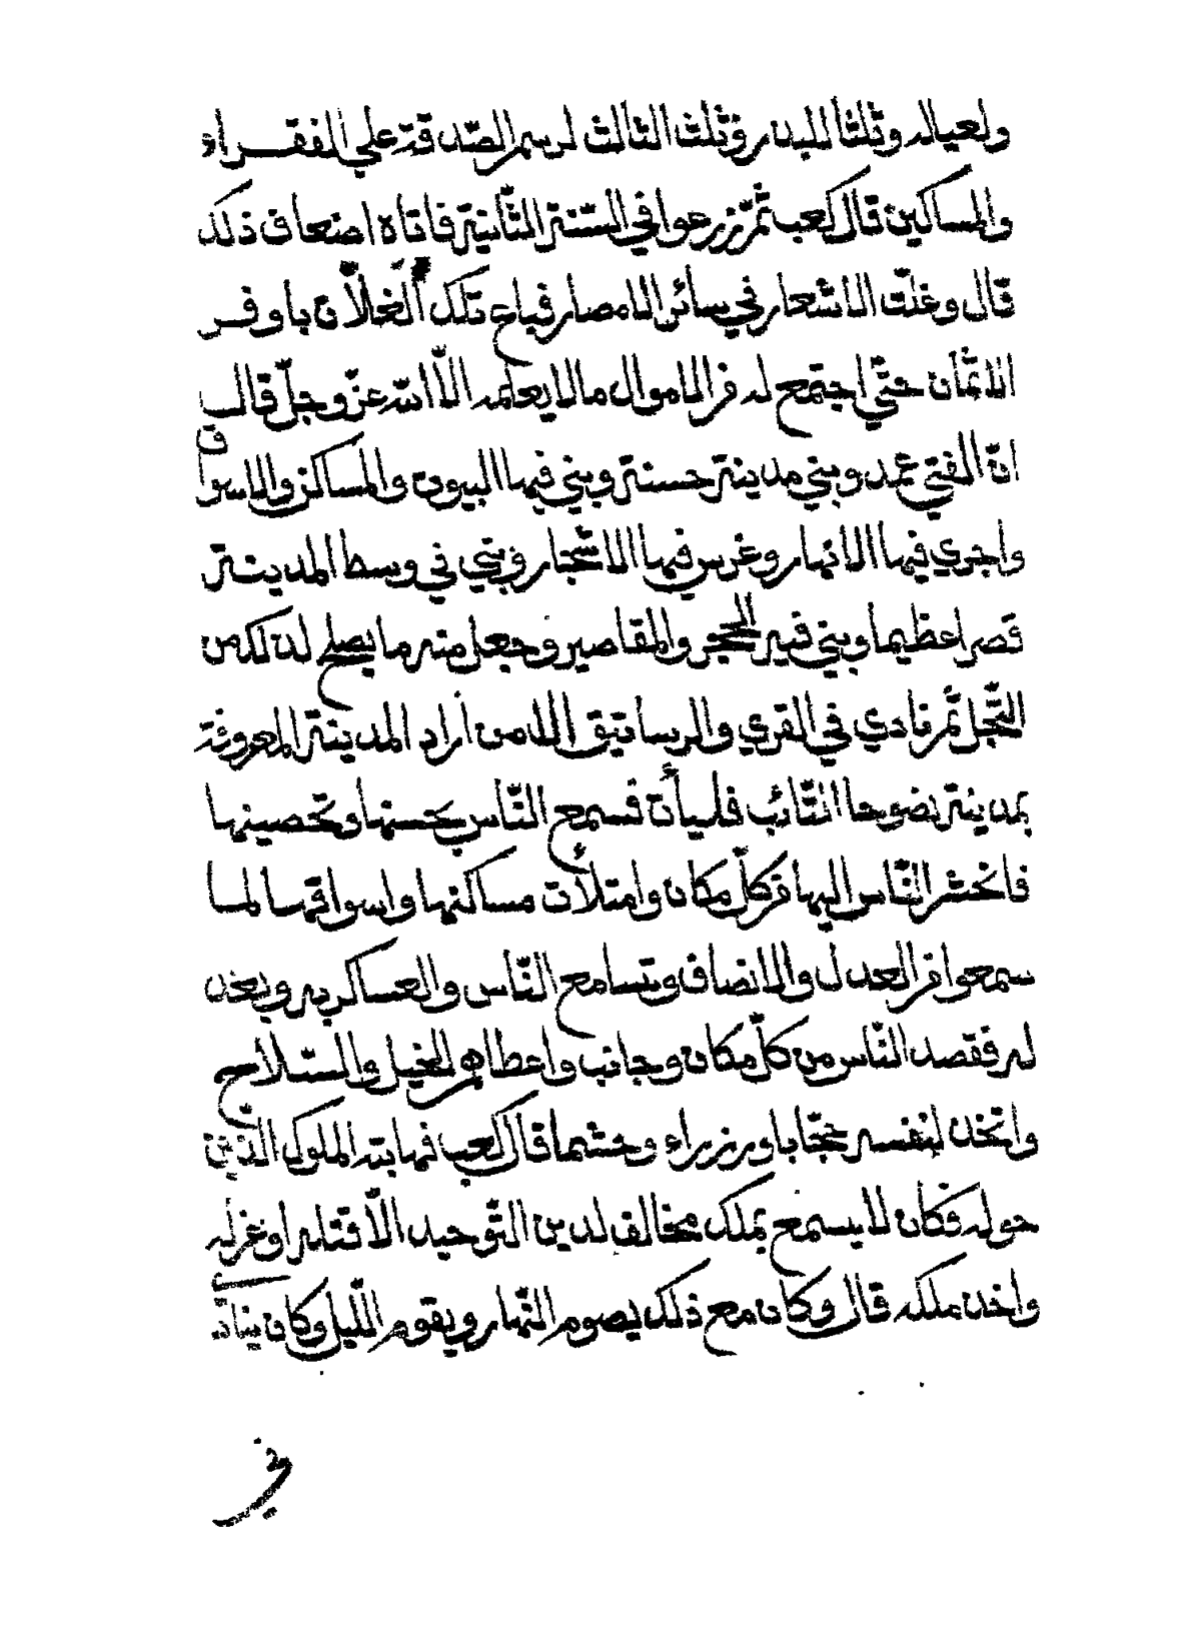 ولعياله وثلثا للبدر وثلث الثالث لرسم الصّدقة علي الفقراء
والمساكين قال كعب ثمّ زرعوا في السّنة الثّانية فاتاه اضعاف ذلك
قال وغلّت الاشعار في سائر الامصار فباع تلك الغلاّن باوفر
الاثمان حتّي اجتمع له من الاموال ما لا يعلمه الاّ الله عزّ وجلّ قال
انّ الفتي عمد وبني مدينة حسنة وبني فيها البيوت والمساكن والاسواق
واجري فيها الانهار وغرس فيها الاشجار وبني في وسط المدينة
قصرا عظيما وبني فيه الحجر والمقاصير وجعل منه ما يصلح لذلك من
التّجل ثمّ نادي في القري والرساتيق الا من أراد المدينة المعروفة
بمدينة نضوحا التّائب فليأت فسمع النّاس بحسنها وتحصينها
فانحشر النّاس اليها من كلّ مكان وامتلأت مساكنها واسواقها لما
سمعوا من العدل والانصاف وتسامع النّاس والعساكر به وبعد
له فقصد النّاس من كلّ مكان وجانب واعطاهم الخيل والسّلاح
واتخذ لنفسه حجّابا ووزراء وحشما قال كعب فهابته الملوك الّذين
حوله فكان لا يسمع بملك مخالف لدين التّوحيد الاّ قتله او غزله
واخذ ملكه قال وكان مع ذلك يصوم النّهار ويقوم اللّيل وكان ينادّي
في